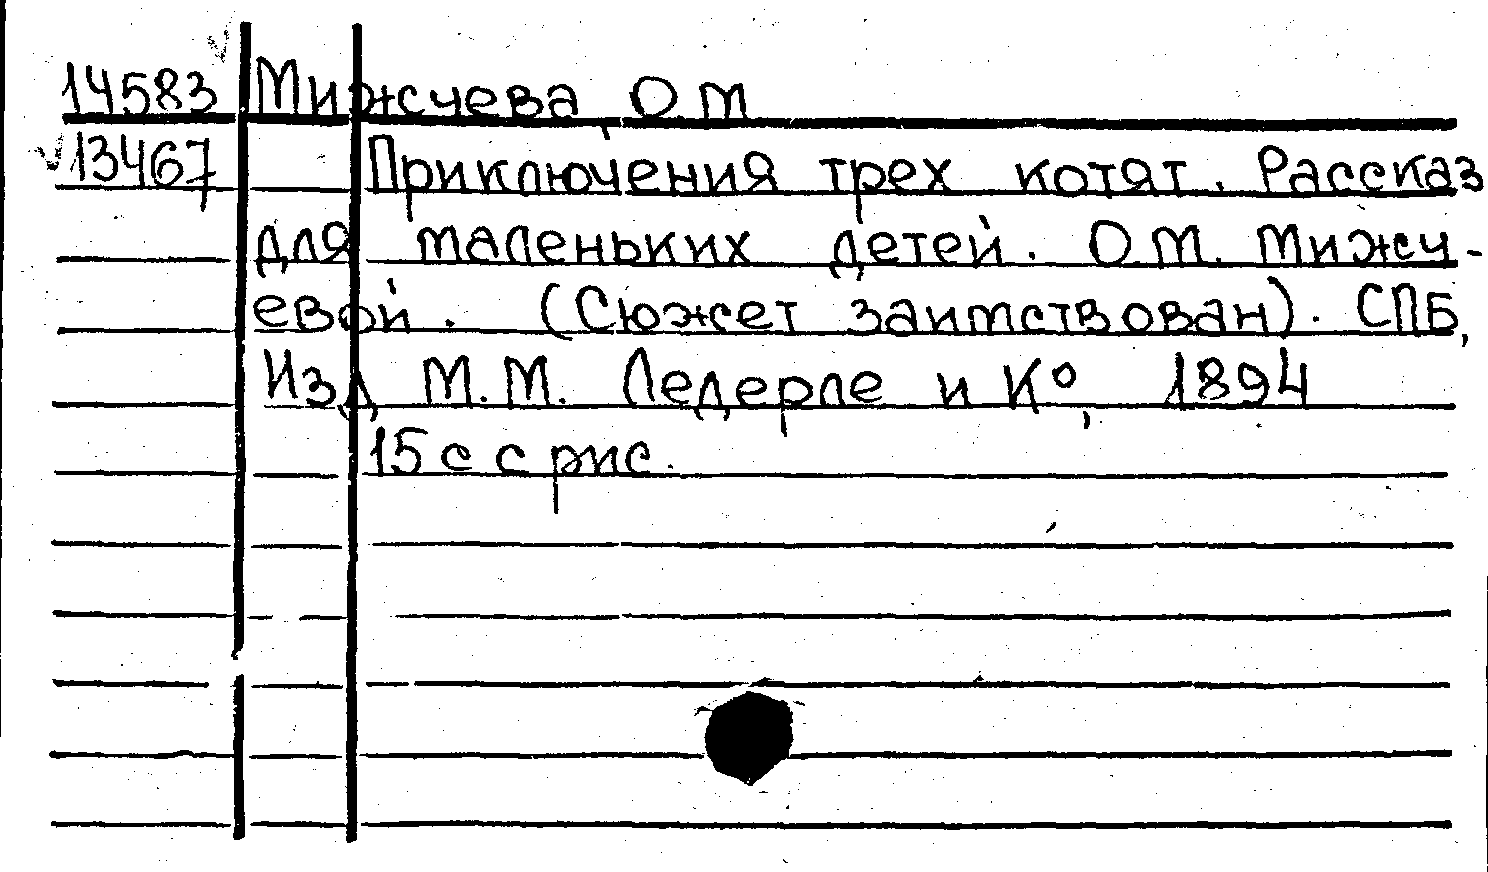 14583 Мижчева, О.М
13467 Приключения трех котят. Рассказ
для маленьких детей. О.М. Мижч-
евой. (Сюжет заимствован). СПБ,
Изд. М.М. Ледерле и К°, 1894
15 с с рис.